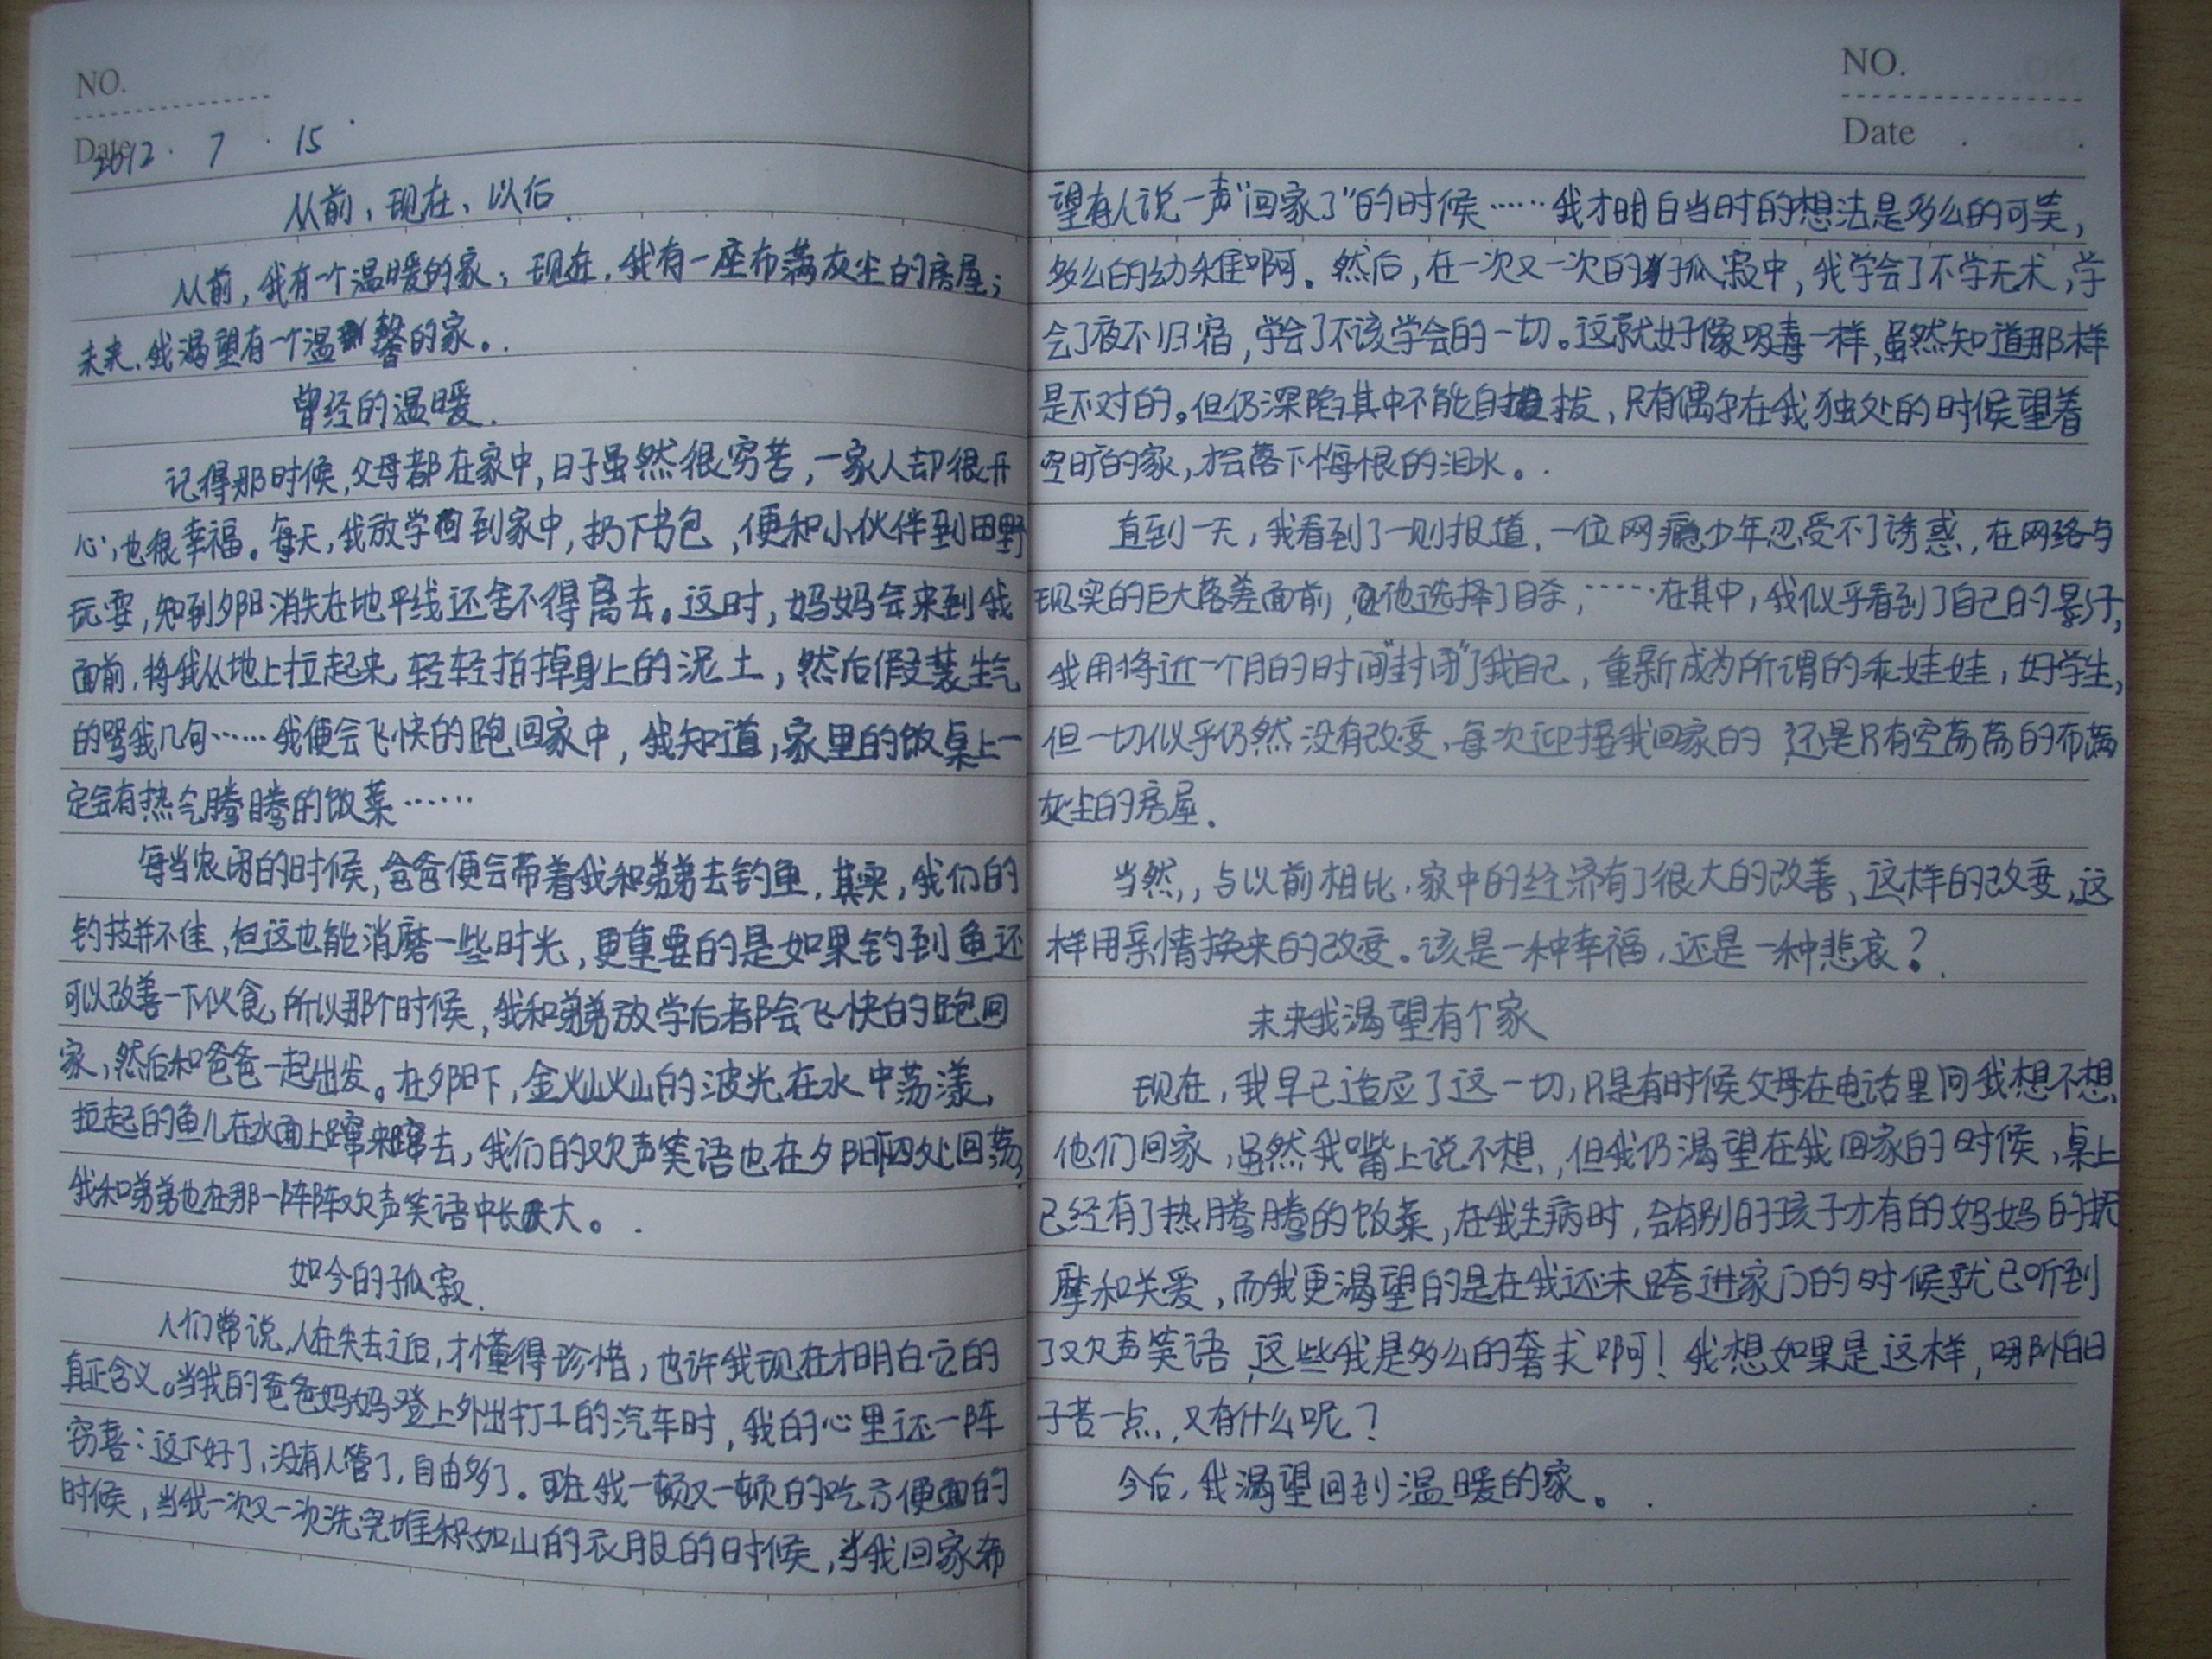 NO.
Date 2012 . 7 . 15 .
从前,现在,以后.
从前,我有一个温暖的家;现在,我有一座布满灰尘的房屋;
未来,我渴望有一个温馨的家。.
曾经的温暖.
记得那时候,父母都在家中,日子虽然很穷苦,一家人却很开
心,也很幸福。每天,我放学回到家中,扔下书包,便和小伙伴到田野
玩耍,知到夕阳消失在地平线还舍不得离去。这时,妈妈会来到我
面前,将我从地上拉起来,轻轻拍掉身上的泥土,然后假装生气
的骂我几句……我便会飞快的跑回家中,我知道,家里的饭桌上一
定会有热气腾腾的饭菜……
每当农闲的时候,爸爸便会带着我和弟弟去钓鱼.其实,我们的
钓技并不佳,但这也能消磨一些时光,更重要的是如果钓到鱼还
可以改善一下伙食,所以那个时候,我和弟弟放学后都会飞快的跑回
家,然后和爸爸一起出发。在夕阳下,金灿灿的波光在水中荡漾,
拉起的鱼儿在水面上蹿来蹿去,我们的欢声笑语也在夕阳四处回荡,
我和弟弟也在那一阵阵欢声笑语中长大。.
如今的孤寂.
人们常说,人在失去之后,才懂得珍惜,也许我现在才明白它的
真正含义。当我的爸爸妈妈登上外出打工的汽车时,我的心里还一阵
窃喜:这下好了,没有人管了,自由多了。可在我一顿又一顿的吃方便面的
时候,当我一次又一次洗完堆积如山的衣服的时候,当我回家希
NO.
Date . .
望有人说一声“回家了”的时候……我才明白当时的想法是多么的可笑,
多么的幼稚啊。然后,在一次又一次的孤寂中,我学会了不学无术,学
会了夜不归宿,学会了不该学会的一切。这就好像吸毒一样,虽然知道那样
是不对的。但仍深陷其中不能自拔,只有偶尔在我独处的时候望着
空旷的家,才会落下悔恨的泪水。.
直到一天,我看到了一则报道,一位网瘾少年忍受不了诱惑,在网络与
现实的巨大落差面前,他选择了自杀,……在其中,我似乎看到了自己的影子,
我用将近一个月的时间“封闭”了我自己,重新成为所谓的乖娃娃,好学生,
但一切似乎仍然没有改变,每次迎接我回家的 还是只有空荡荡的布满
灰尘的房屋.
当然,,与以前相比,家中的经济有了很大的改善,这样的改变,这
样用亲情换来的改变。该是一种幸福,还是一种悲哀?.
未来我渴望有个家
现在,我早已适应了这一切,只是有时候父母在电话里问我想不想
他们回家,虽然我嘴上说不想,,但我仍渴望在我回家的时候,桌上
已经有了热腾腾的饭菜,在我生病时,会有别的孩子才有的妈妈的抚
摩和关爱,而我更渴望的是在我还未跨进家门的时候就已听到
了欢声笑语,这些我是多么的奢求啊!我想如果是这样,哪怕日
子苦一点,又有什么呢?
今后,我渴望回到温暖的家。.